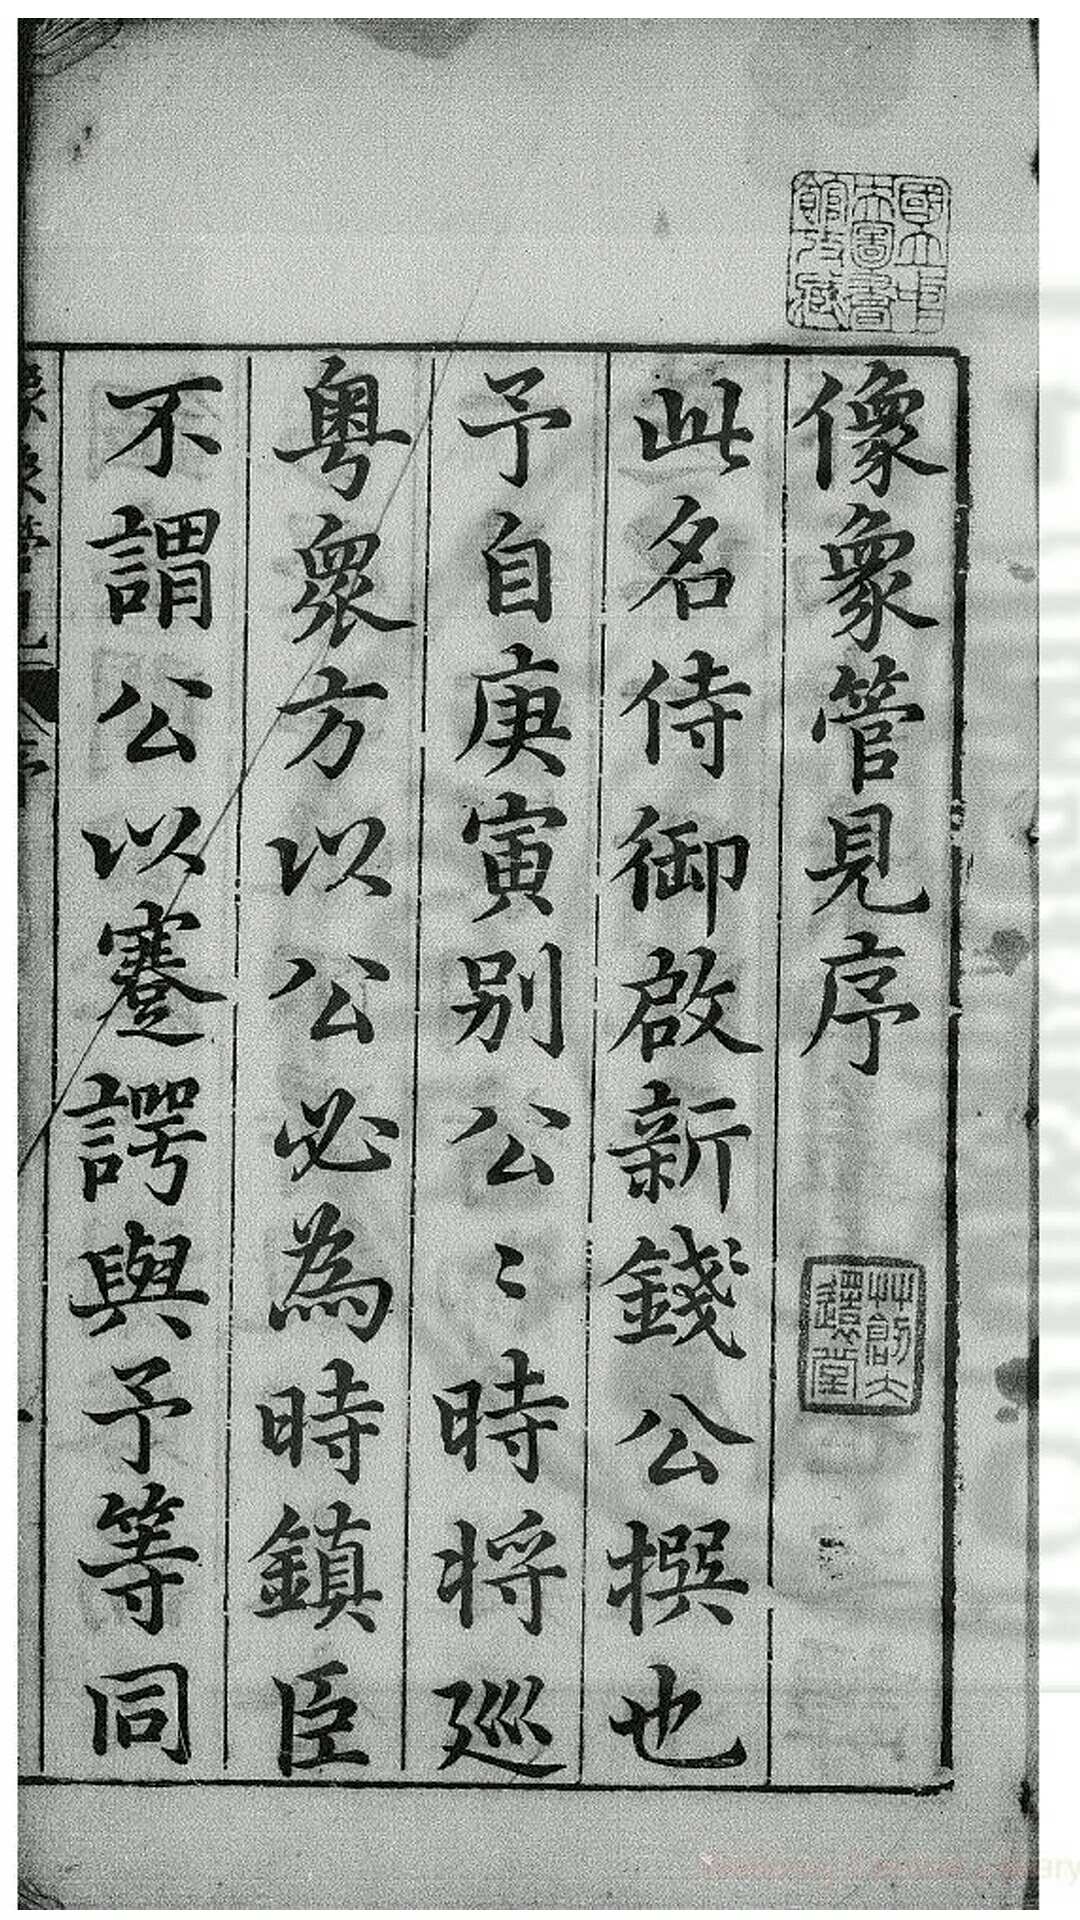 像象管見序
此名侍御啟新錢公撰也
予自庚寅别公〻時将廵
粤衆方以公必為時鎮臣
不謂公以蹇諤與予等同
國立中
央圖書
館收藏